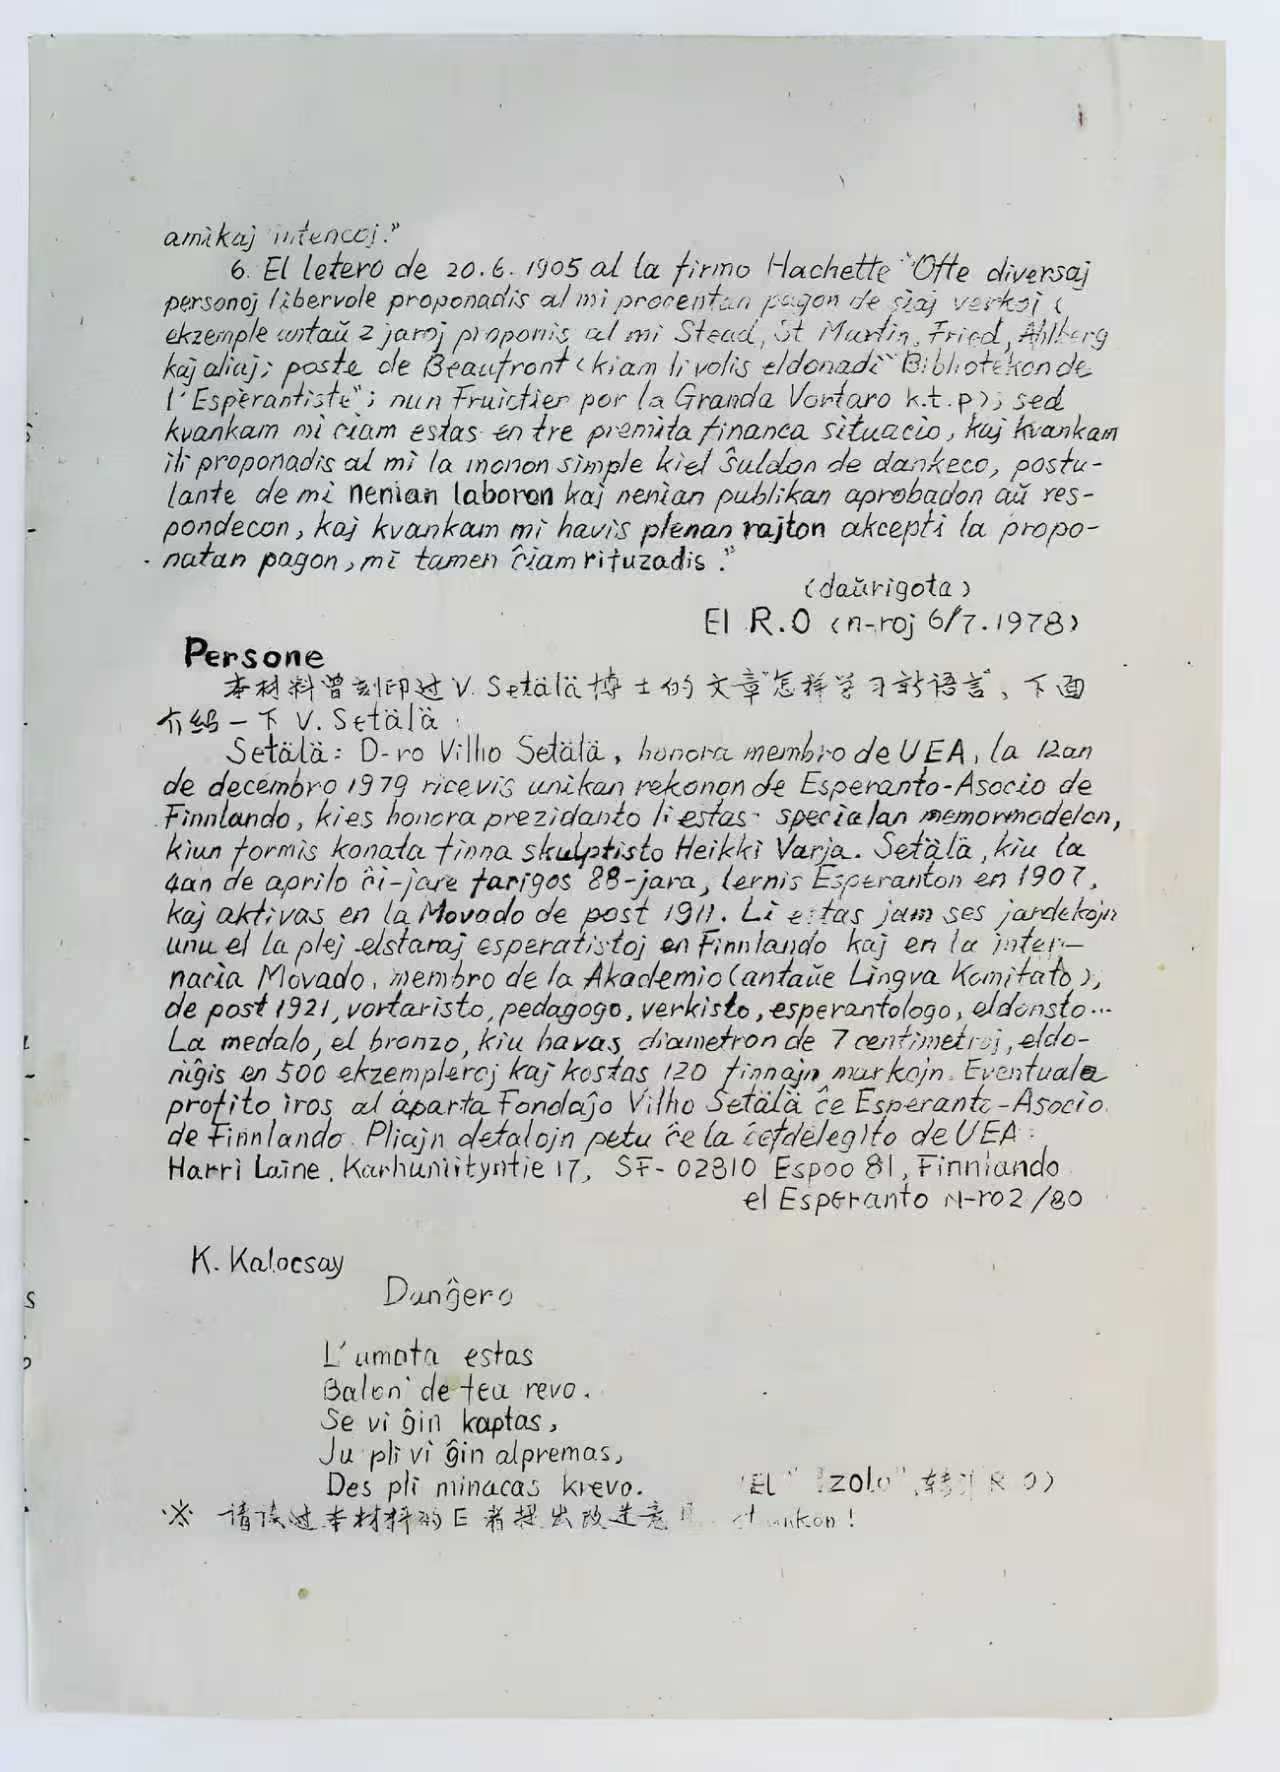 amikaj intencoj."
6. El letero de 20.6.1905 al la firmo Hachette "Ofte diversaj
personoj libervole proponadis al mi procentan pagon de siaj verkoj (
ekzemple antaŭ 2 jaroj proponis al mi Stead, St Martin, Fried, Ahlberg
kaj aliaj; poste de Beaufront (kiam li volis eldonadi "Bibliotekon de
l'Espèrantiste"; nun Fruictier por la Granda Vortaro k.t.p); sed
kvankam mi ciam estas en tre premita financa situacio, kaj kvankam
ili proponadis al mi la monon simple kiel ŝuldon de dankeco, postu-
lante de mi nenian laboron kaj nenian publikan aprobadon aŭ res-
pondecon, kaj kvankam mi havis plenan rajton akcepti la propo-
natan pagon, mi tamen ĉiam rifuzadis."
(daŭrigota)
El R.O (n-roj 6/7.1978)
Persone
本材料曾刻印过V. Setälä博士的文章"怎样学习新语言", 下面
介绍一下 V. Setälä:
Setälä: D-ro Vilho Setälä, honora membro de UEA, la 12an
de decembro 1979 ricevis unikan rekonon de Esperanto-Asocio de
Finnlando, kies honora prezidanto li estas: specialan memormodelon,
kiun formis konata finna skulptisto Heikki Varja. Setälä, kiu la
4an de aprilo ĉi-jare fariĝos 88-jara, lernis Esperanton en 1907,
kaj aktivas en la Movado de post 1911. Li estas jam ses jardekojn
unu el la plej elstaraj esperatistoj en Finnlando kaj en la inter-
nacia Movado, membro de la Akademio (antaŭe Lingva Komitato),
de post 1921, vortaristo, pedagogo, verkisto, esperantologo, eldonsto...
La medalo, el bronzo, kiu havas diametron de 7 centimetroj, eldo-
niĝis en 500 ekzempleroj kaj kostas 120 finnajn markojn. Eventuala
profito iros al aparta Fondaĵo Vilho Setälä ĉe Esperanto-Asocio
de Finnlando. Pliajn detalojn petu ĉe la ĉefdelegito de UEA:
Harri Laine, Karhuniityntie 17, SF-02810 Espoo 81, Finnlando
el Esperanto N-ro2/80
K. Kalocsay
Danĝero
L'amata estas
Balon' de fea revo.
Se vi ĝin kaptas,
Ju pli vi ĝin alpremas,
Des pli minacas krevo. (El "Izolo", 转引 R.O)
※ 请读过本材料的E者提出改进意